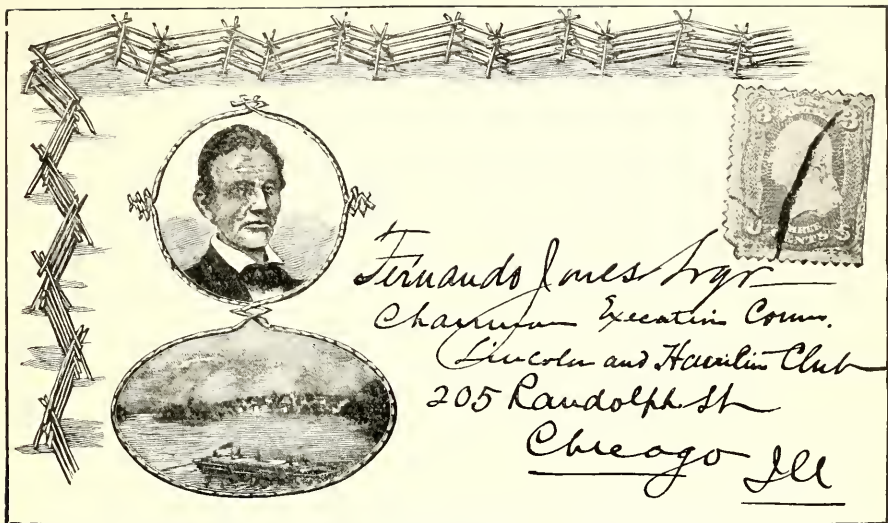 Fernando Jones Esqr
Chairman Executive Comm.
Lincoln and Hamlin Club
205 Randolph St
Chicago Ill
3 3
THREE
CENTS